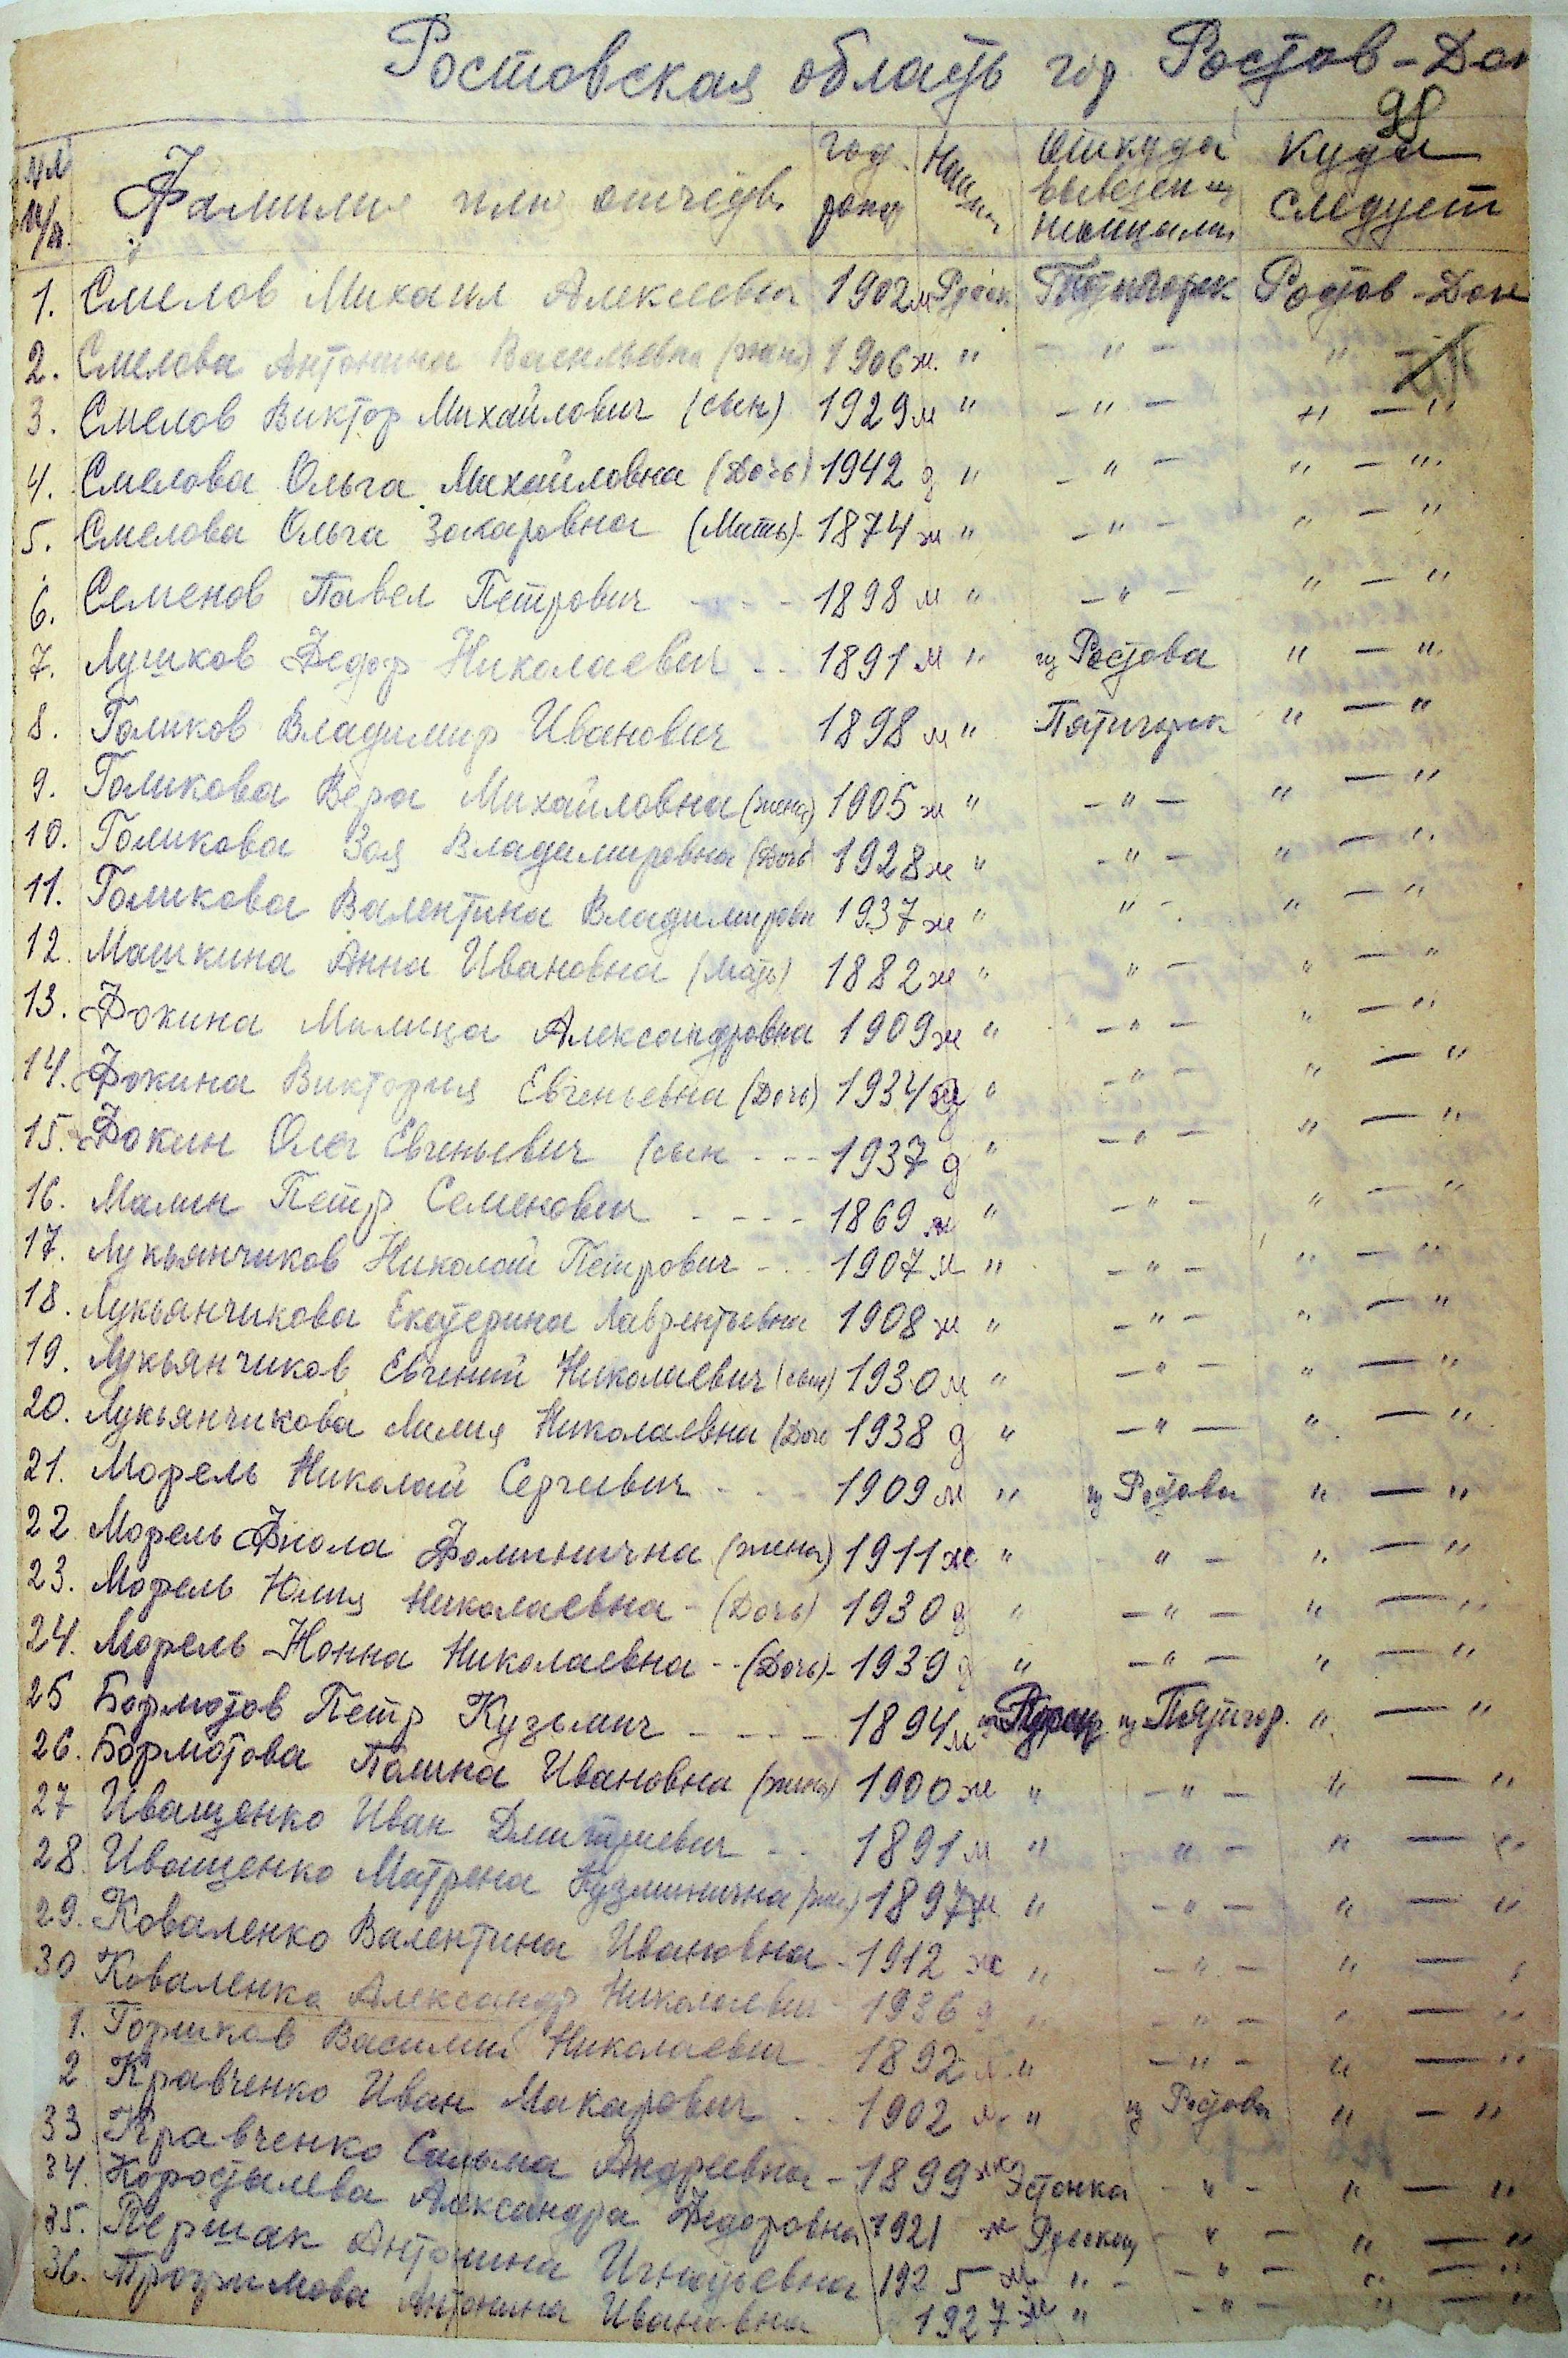 Ростовская область гор. Ростов-Дон
98
№№ п/п. Фамилия имя отчеств. год рожд Откуда вывезен Куда следует
1. Смелов Михаил Алексеевич 1902 м Русск Пятигорск Ростов-Дон
2. Смелова Антонина Васильевна (жена) 1906 ж. " " - " -
3. Смелов Виктор Михайлович (сын) 1929 м " - " - " - "
4. Смелова Ольга Михайловна (Дочь) 1942 д " - " - " - ".
5. Смелова Ольга Захаровна (Мать) - 1874 ж " - " - " - "
6. Семенов Павел Петрович - - - 1898 м " - " - " - "
7. Лушков Федор Николаевич - - 1891 м " из Ростова " - ".
8. Голиков Владимир Иванович 1898 м " Пятигорск " - "
9. Голикова Вера Михайловна (жена) 1905 ж " - " - " - "
10. Голикова Зоя Владимировна (Дочь) 1928 ж " - " - " - "
11. Голикова Валентина Владимировн 1937 ж " " - " - "
12. Машкина Анна Ивановна (мать) 1882 ж " " - " - "
13. Фокина Милица Александровна 1909 ж " - " - " - "
14. Фокина Виктория Евгеньевна (Дочь) 1934 д " - " - " - "
15. Фокин Олег Евгеньевич (сын - - - 1937 д " - " - " - "
16. Малин Петр Семенович - - - - 1869 м " - " - " - "
17. Лукьянчиков Николай Петрович - - 1907 м " - " - " - "
18. Лукьянчикова Екатерина Лаврентьевна 1908 ж " - " - " - "
19. Лукьянчиков Евгений Николаевич (сын) 1930 м " - " - " - "
20. Лукьянчикова Лилия Николаевна (Доч 1938 д " - " - " - "
21. Морель Николай Сергеевич - - - 1909 м " из Ростова " - "
22 Морель Фиола Фоминична (жена) 1911 ж " " - " - "
23. Морель Юлия Николаевна - (Дочь) 1930 д " - " - " - "
24. Морель Нонна Николаевна - - (Дочь) - 1939 д " - " - " - "
25 Бормотов Петр Кузьмич - - - - 1894 м из Пятигор. " - "
26. Бормотова Полина Ивановна (жена) 1900 ж " - " - " - "
27 Иващенко Иван Дмитриевич - - 1891 м " " - " - "
28. Иващенко Матрена Кузминична (жен.) 1897 ж " - " - " - "
29. Коваленко Валентина Ивановна - 1912 ж " - " - " -
30 Коваленко Александр Николаевич - 1936 д " - " - " - "
1. Горшков Василий Николаевич 1892 м. " - " - " - "
2 Кравченко Иван Макарович - - 1902 м. " из Ростова " - "
33 Кравченко Сальма Андреевна - 1899 ж Эстонка - " - " - "
34. Коростылева Александра Федоровна 1921 ж Русская - " - " - "
35. Першак Антонина Игнатьевна 1925 ж " - - " - " - "
36. Трофимова Антонина Ивановна 1927 ж " - " - " - "